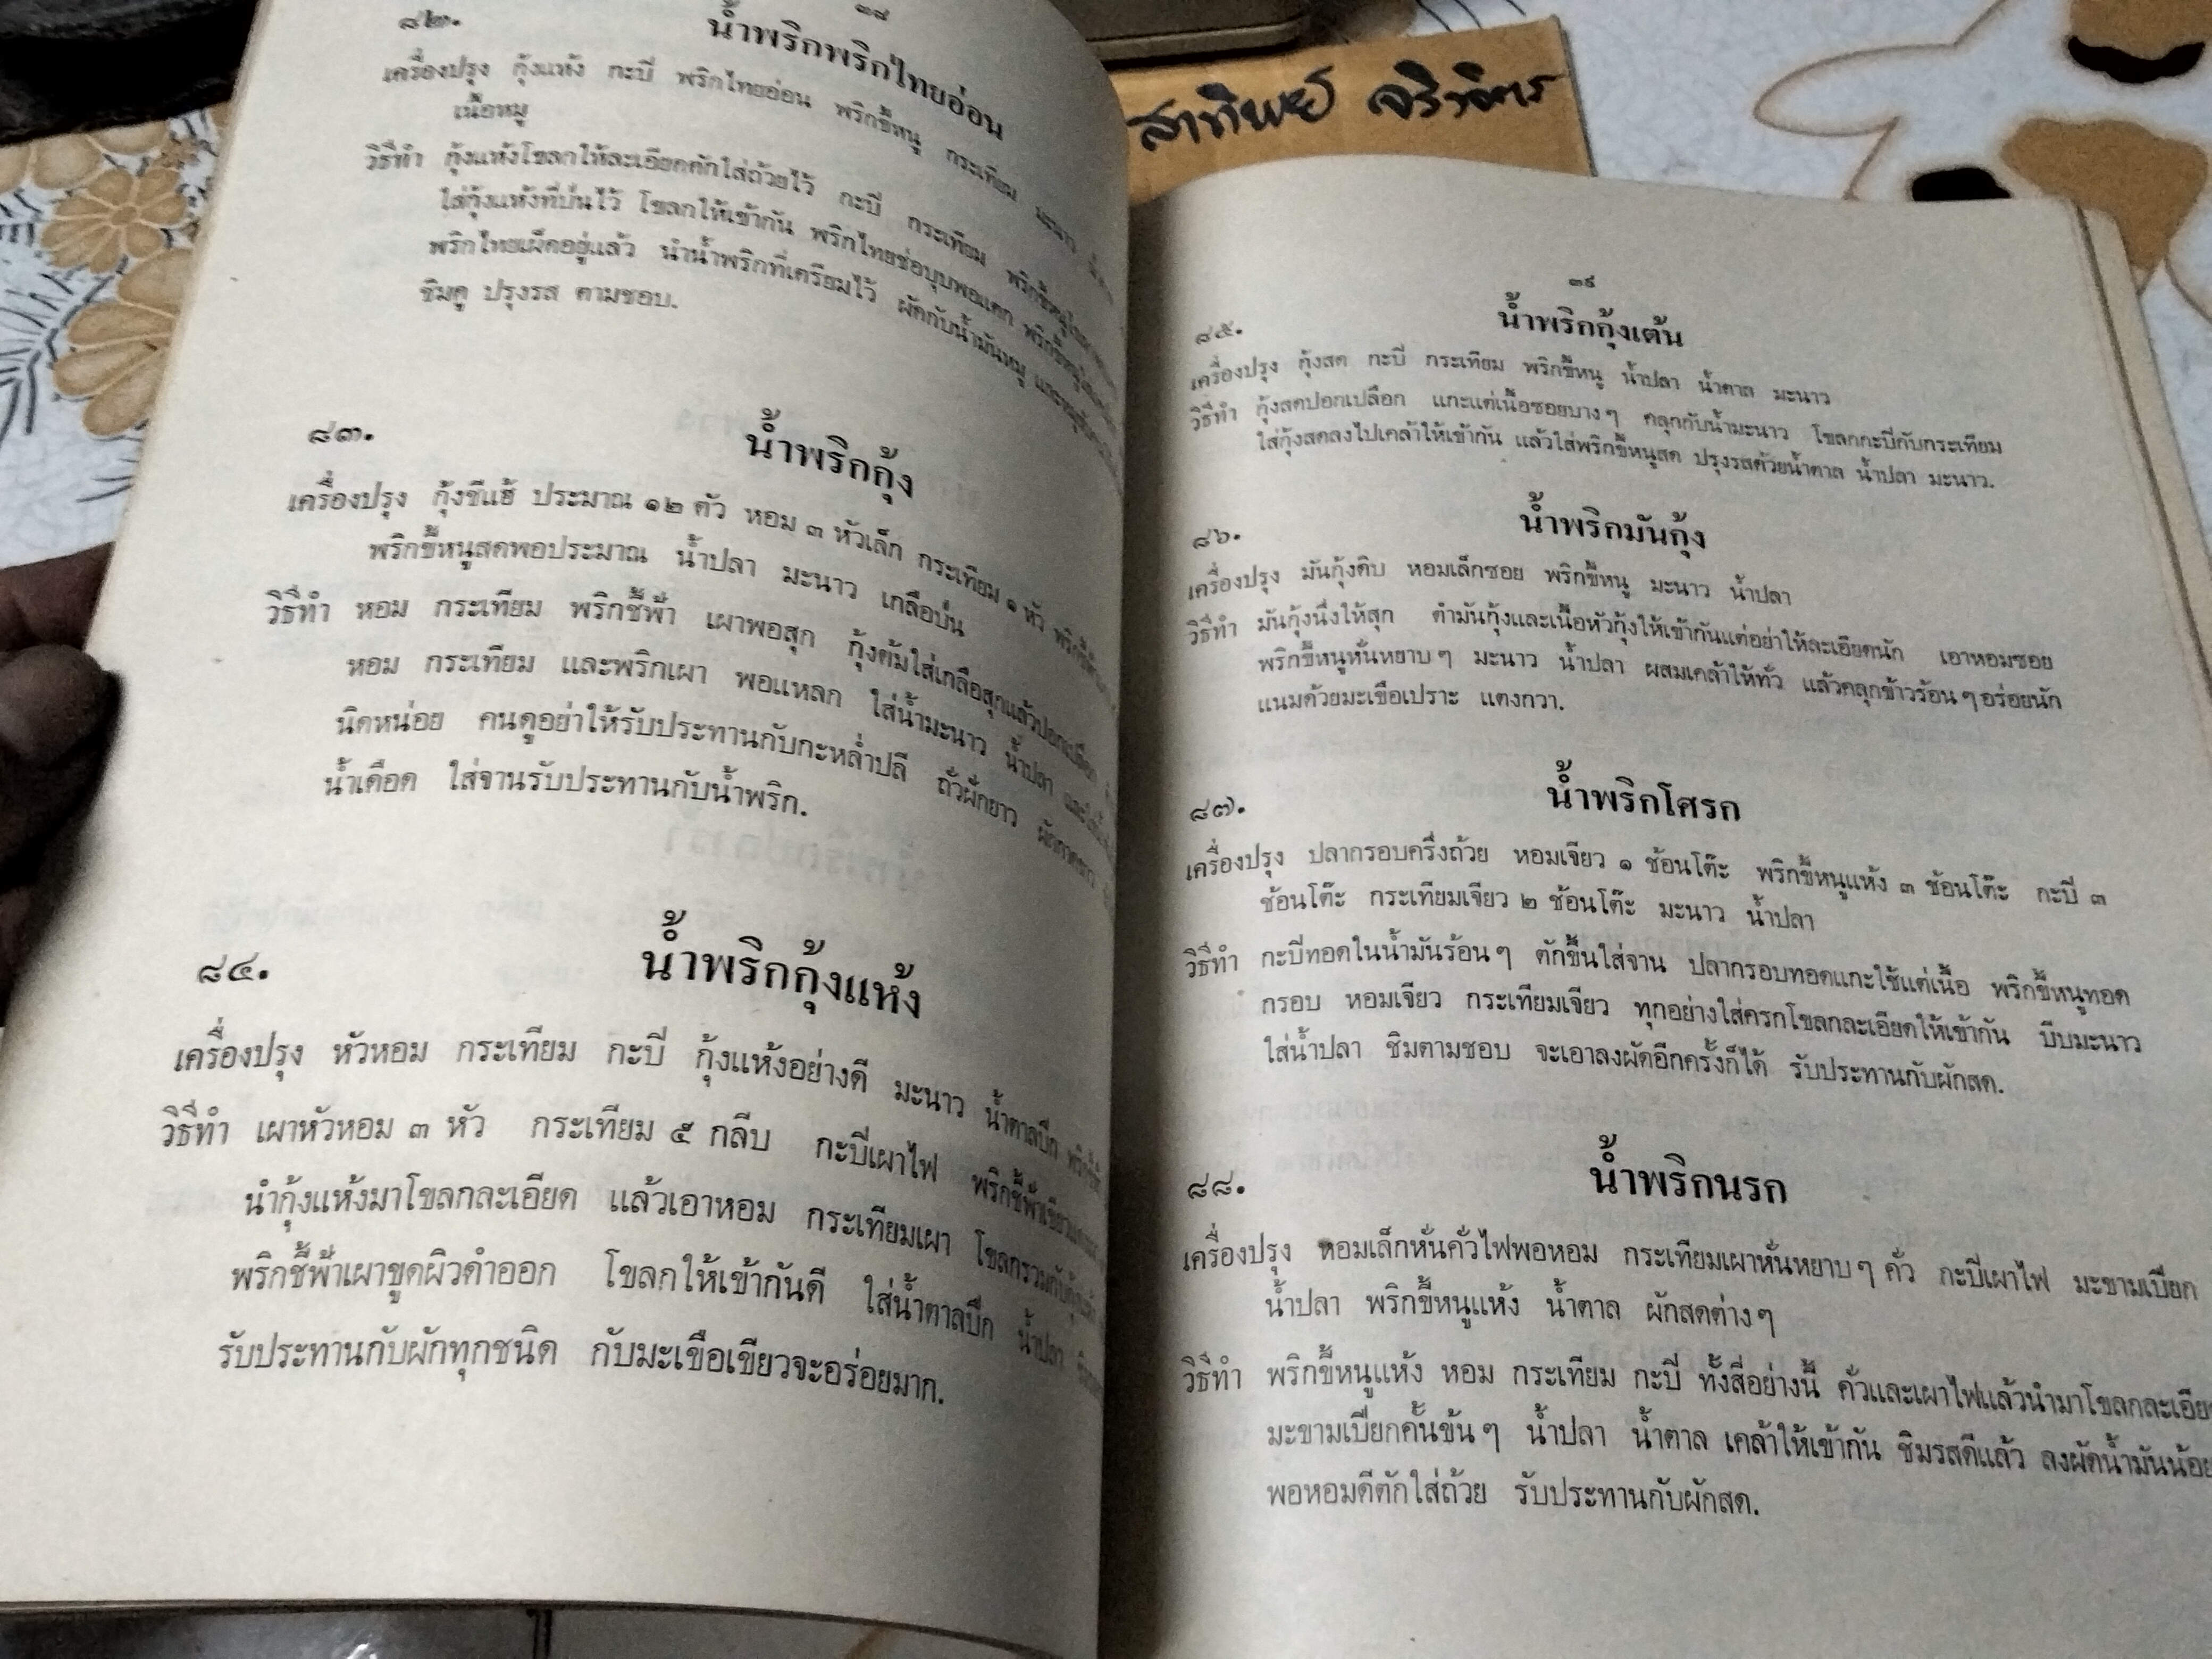 ๓๘
๘๒. น้ำพริกพริกไทยอ่อน
เครื่องปรุง กุ้งแห้ง กะปิ พริกไทยอ่อน พริกขี้หนู กระเทียม มะนาว
เนื้อหมู
วิธีทำ กุ้งแห้งโขลกให้ละเอียดตักใส่ถ้วยไว้ กะปิ กระเทียม พริกขี้หนู
ใส่กุ้งแห้งที่ป่นไว้ โขลกให้เข้ากัน พริกไทยช่อบุบพอแตก
พริกไทยเผ็ดอยู่แล้ว นำน้ำพริกที่เตรียมไว้ ผัดกับน้ำมันหมู
ชิมดู ปรุงรส ตามชอบ.
๘๓. น้ำพริกกุ้ง
เครื่องปรุง กุ้งชีแฮ้ ประมาณ ๑๒ ตัว หอม ๓ หัวเล็ก กระเทียม ๑ หัว
พริกขี้หนูสดพอประมาณ น้ำปลา มะนาว เกลือป่น
วิธีทำ หอม กระเทียม พริกชี้ฟ้า เผาพอสุก กุ้งต้มใส่เกลือสุกแล้วปอกเปลือก
หอม กระเทียม และพริกเผา พอแหลก ใส่น้ำมะนาว น้ำปลา
นิดหน่อย คนดูอย่าให้รับประทานกับกะหล่ำปลี ถั่วฝักยาว ผักกาดขาว
น้ำเดือด ใส่จานรับประทานกับน้ำพริก.
๘๔. น้ำพริกกุ้งแห้ง
เครื่องปรุง หัวหอม กระเทียม กะปิ กุ้งแห้งอย่างดี มะนาว น้ำตาลปึก
วิธีทำ เผาหัวหอม ๓ หัว กระเทียม ๕ กลีบ กะปิเผาไฟ พริกชี้ฟ้าเขียว
นำกุ้งแห้งมาโขลกละเอียด แล้วเอาหอม กระเทียมเผา โขลกรวมกับกุ้งแห้ง
พริกชี้ฟ้าเผาขูดผิวดำออก โขลกให้เข้ากันดี ใส่น้ำตาลปึก น้ำปลา
รับประทานกับผักทุกชนิด กับมะเขือเขียวจะอร่อยมาก.
สาทิพย์
๓๙
๘๕. น้ำพริกกุ้งเต้น
เครื่องปรุง กุ้งสด กะปิ กระเทียม พริกขี้หนู น้ำปลา น้ำตาล มะนาว
วิธีทำ กุ้งสดปอกเปลือก แกะแต่เนื้อซอยบาง ๆ คลุกกับน้ำมะนาว โขลกกะปิกับกระเทียม
ใส่กุ้งสดลงไปเคล้าให้เข้ากัน แล้วใส่พริกขี้หนูสด ปรุงรสด้วยน้ำตาล น้ำปลา มะนาว.
๘๖. น้ำพริกมันกุ้ง
เครื่องปรุง มันกุ้งดิบ หอมเล็กซอย พริกขี้หนู มะนาว น้ำปลา
วิธีทำ มันกุ้งนึ่งให้สุก ตำมันกุ้งและเนื้อหัวกุ้งให้เข้ากันแต่อย่าให้ละเอียดนัก เอาหอมซอย
พริกขี้หนูหั่นหยาบ ๆ มะนาว น้ำปลา ผสมเคล้าให้ทั่ว แล้วคลุกข้าวร้อน ๆ อร่อยนัก
แนมด้วยมะเขือเปราะ แตงกวา.
๘๗. น้ำพริกโศรก
เครื่องปรุง ปลากรอบครึ่งถ้วย หอมเจียว ๑ ช้อนโต๊ะ พริกขี้หนูแห้ง ๓ ช้อนโต๊ะ กะปิ ๓
ช้อนโต๊ะ กระเทียมเจียว ๒ ช้อนโต๊ะ มะนาว น้ำปลา
วิธีทำ กะปิทอดในน้ำมันร้อน ๆ ตักขึ้นใส่จาน ปลากรอบทอดแกะใช้แต่เนื้อ พริกขี้หนูทอด
กรอบ หอมเจียว กระเทียมเจียว ทุกอย่างใส่ครกโขลกละเอียดให้เข้ากัน บีบมะนาว
ใส่น้ำปลา ชิมตามชอบ จะเอาลงผัดอีกครั้งก็ได้ รับประทานกับผักสด.
๘๘. น้ำพริกนรก
เครื่องปรุง หอมเล็กหั่นคั่วไฟพอหอม กระเทียมเผาหั่นหยาบ ๆ คั่ว กะปิเผาไฟ มะขามเปียก
น้ำปลา พริกขี้หนูแห้ง น้ำตาล ผักสดต่าง ๆ
วิธีทำ พริกขี้หนูแห้ง หอม กระเทียม กะปิ ทั้งสี่อย่างนี้ คั่วและเผาไฟแล้วนำมาโขลกละเอียด
มะขามเปียกคั้นข้น ๆ น้ำปลา น้ำตาล เคล้าให้เข้ากัน ชิมรสดีแล้ว ลงผัดน้ำมันน้อย
พอหอมดีตักใส่ถ้วย รับประทานกับผักสด.